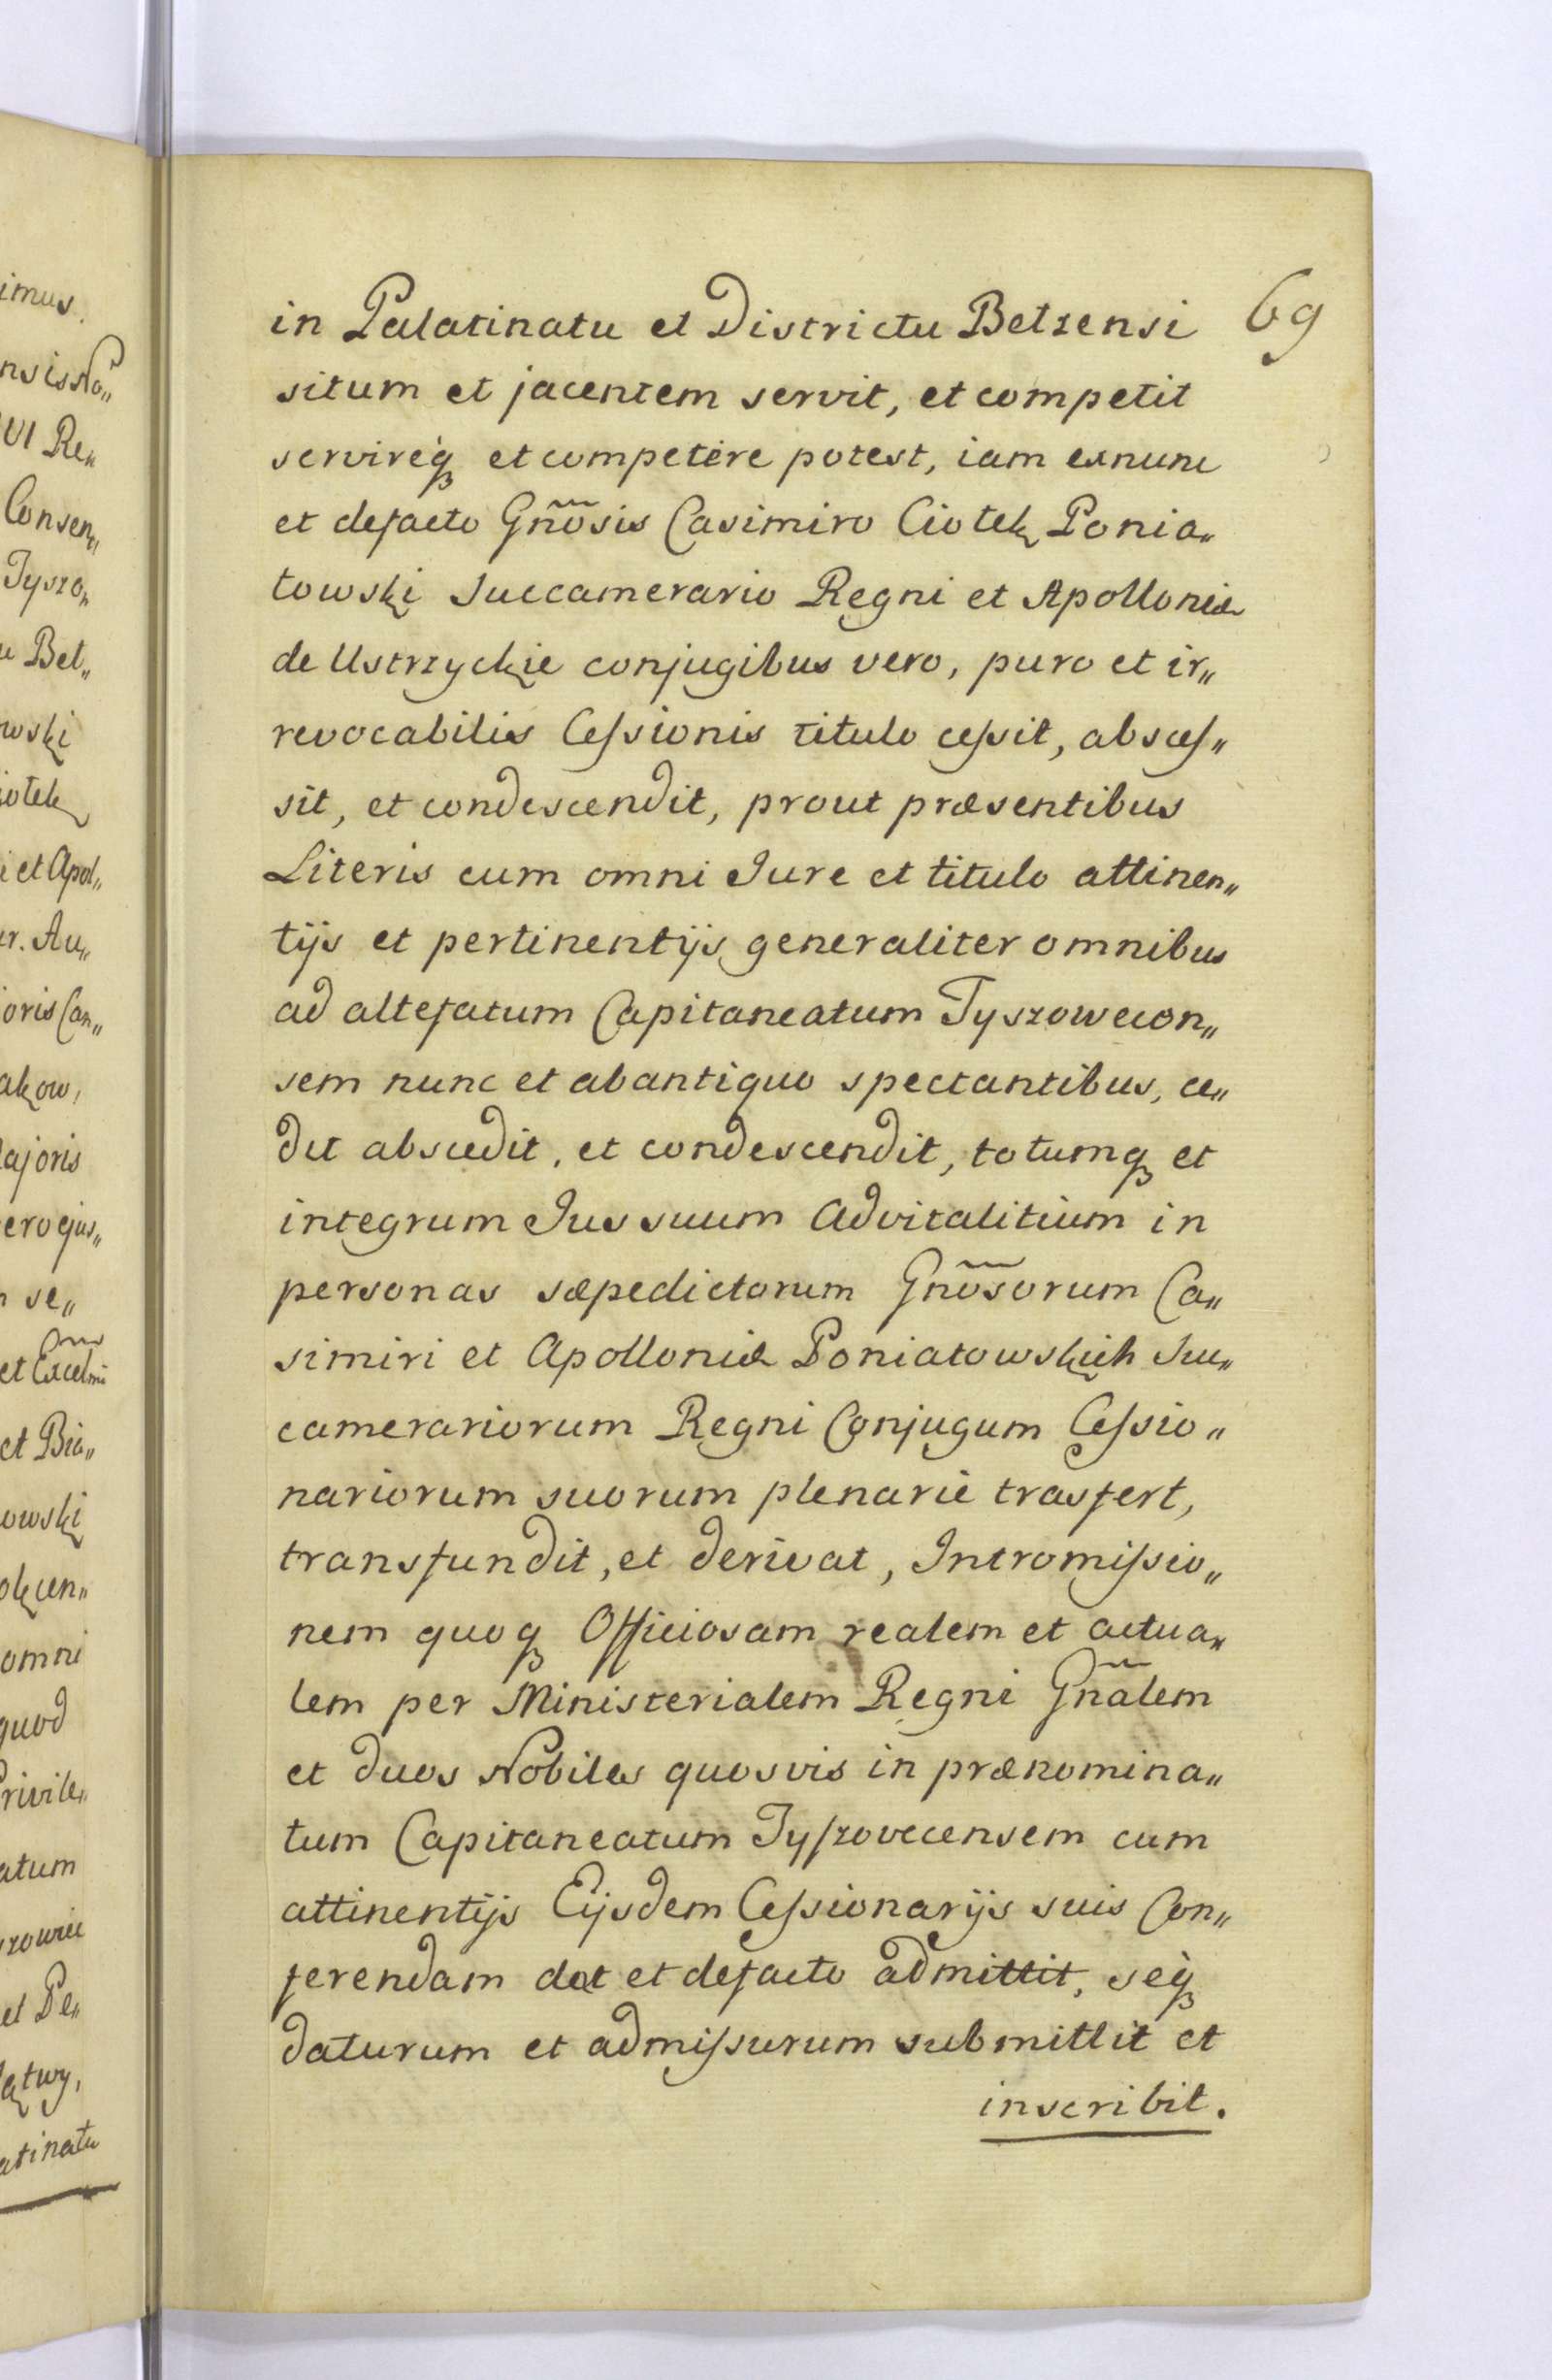 imus.
nsis No„
VI Re„
Consen„
Tyszo„
Bel„
owski
iotek
i et Apol„
Au„
oris Can„
akow,
ajoris
ero ejus„
se„
et Excelmi
et Bia„
owski
omni
quod
Privile„
atum
et Pe„
atinatu
69
in Palatinatu et Districtu Betzensi
situm et jacentem servit, et competit
servireq₃ et competere potest, iam exnunc
et defacto Gnõsis Casimiro Ciotek Ponia„
towski Succamerario Regni et Apolloniæ
de Ustrzyckie conjugibus vero, puro et ir„
revocabilis Ceſsionis titulo ceſsit, absceſ„
sit, et condescendit, prout præsentibus
Literis cum omni Jure et titulo attinen„
tijs et pertinentijs generaliter omnibus
ad altefatum Capitaneatum Tyszowecen„
sem nunc et abantiquo spectantibus, ce„
dit abscedit, et condescendit, totumq₃ et
integrum Jus suum Advitalitium in
personas sæpedictorum Gnõsorum Ca„
simiri et Apolloniæ Poniatowskich Suc„
camerariorum Regni Conjugum Ceſsio„
nariorum suorum plenarie trasfert,
transfundit, et derivat, Intromiſsio„
nem quoq₃ Officiosam realem et actua„
lem per Ministerialem Regni Gñalem
et duos Nobiles quosvis in prænomina„
tum Capitaneatum Tyſzovecensem cum
attinentijs Eijsdem Ceſsionarijs suis Con„
ferendam dat et defacto admittit, seq₃
daturum et admiſsurum submittit et
inscribit.